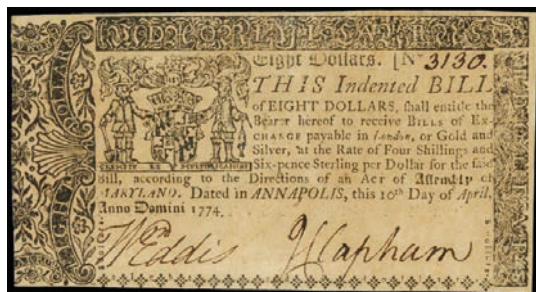 EIGHT DOLLARS
Eight Dollars. [No 3130.
THIS Indented BILL
of EIGHT DOLLARS, shall entitle the
Bearer hereof to receive BILLS of EX-
CHANGE payable in London, or Gold and
Silver, at the Rate of Four Shillings and
Six-pence Sterling per Dollar for the said
Bill, according to the Directions of an Act of Assembly of
MARYLAND. Dated in ANNAPOLIS, this 10th Day of April,
Anno Domini 1774.
CRESCITE ET MULTIPLICAMINI
W Eddis J Clapham